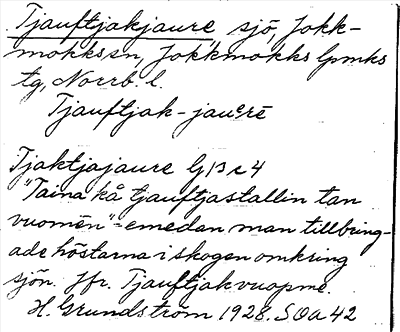 Tjauftjakjaure, sjö, Jokk-
mokks sn, Jokkmokks lpmks
tg, Norrb. l.
Tjauftjak-jauᵉrē
Tjaktjajaure GB c4
"Taina kå tjauftjastallin tan
vuomēn" = emedan man tillbring-
ade höstarna i skogen omkring
sjön. Jfr. Tjauftjakvuopme.
H. Grundström 1928. SOA 42